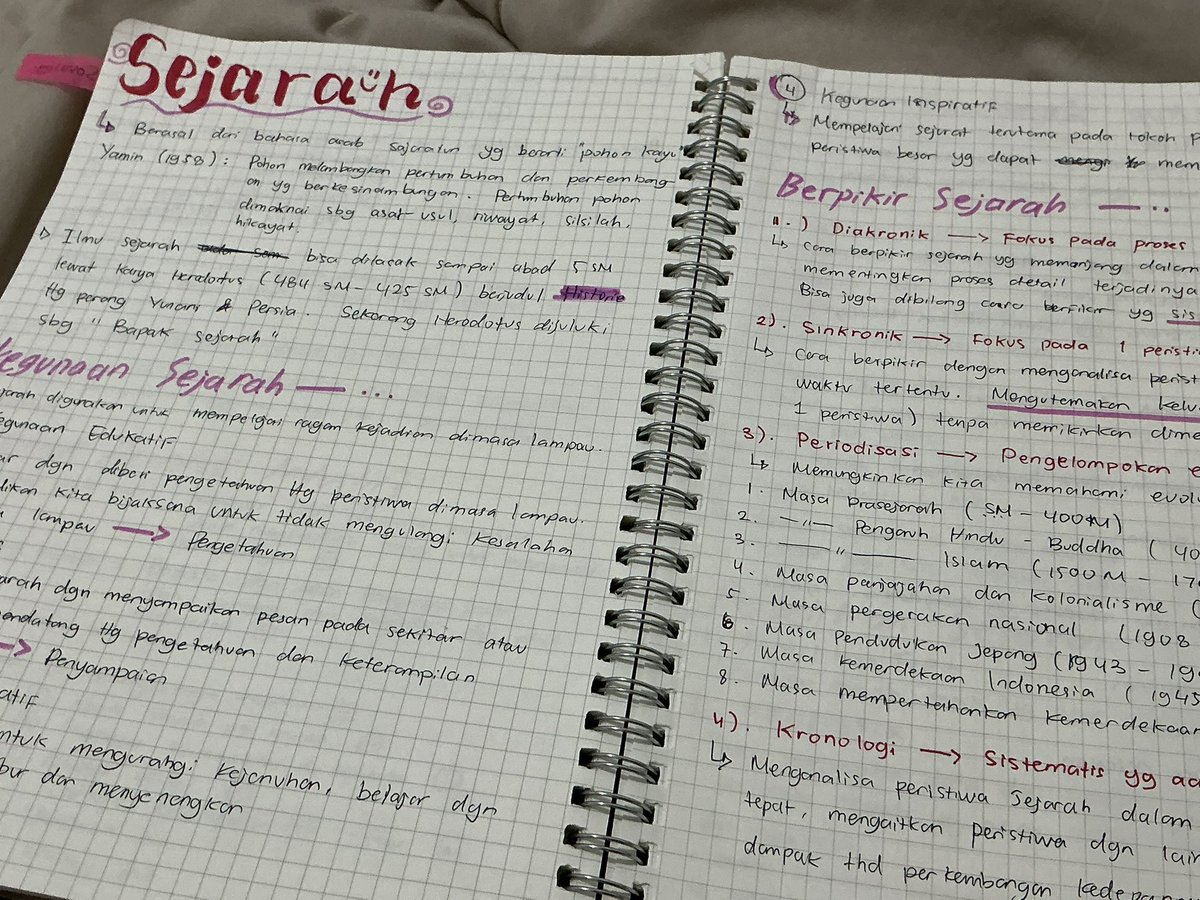 Sejarah
↳ Berasal dari bahasa arab sajaratun yg berarti "pohon kayu"
Yamin (1958) : Pohon melambangkan pertumbuhan dan perkembang-
an yg berkesinambungan. Pertumbuhan pohon
dimaknai sbg asal-usul, riwayat, silsilah,
hikayat.
Ilmu sejarah bisa dilacak sampai abad 5 SM
lewat karya Herodotus (484 SM - 425 SM) berjudul Historia
ttg perang Yunani & Persia. Sekarang Herodotus dijuluki
sbg "Bapak sejarah"
kegunaan Sejarah — ...
jarah digunakan untuk mempelajari ragam kejadian dimasa lampau.
egunaan Edukatif
ar dgn diberi pengetahuan ttg peristiwa dimasa lampau.
dikan kita bijaksana untuk tidak mengulangi kesalahan
lampau → Pengetahuan
arah dgn menyampaikan pesan pada sekitar atau
endatang ttg pengetahuan dan keterampilan
→ Penyampaian
atif
ntuk mengurangi kejenuhan, belajar dgn
bur dan menyenangkan
4 Kegunaan Inspiratif
↳ Mempelajari sejarat terutama pada tokoh P
peristiwa besar yg dapat mem
Berpikir Sejarah — ..
1.) Diakronik → Fokus pada proses
↳ Cara berpikir sejarah yg memanjang dalam
mementingkan proses detail terjadinya
Bisa juga dibilang cara berpikir yg sis
2). Sinkronik → Fokus pada 1 peristi
↳ Cara berpikir dengan menganalisa perist
waktu tertentu. Mengutamakan kelu
1 peristiwa) tanpa memikirkan dime
3). Periodisasi → Pengelompokan e
↳ Memungkinkan kita memahami evolu
1. Masa Prasejarah (SM - 400 M)
2. —"— Pengaruh Hindu - Buddha ( 40
3. —"— Islam (1500 M - 17
4. Masa panjajahan dan kolonialisme (
5. Masa pergerakan nasional (1908
6. Masa Pendudukan Jepang (1943 - 19
7. Masa kemerdekaan Indonesia ( 1945
8. Masa mempertahankan kemerdekaan
4). Kronologi → Sistematis yg ada
↳ Menganalisa peristiwa Sejarah dalam
tepat, mengaitkan peristiwa dgn lain
dampak thd perkembangan kedepan